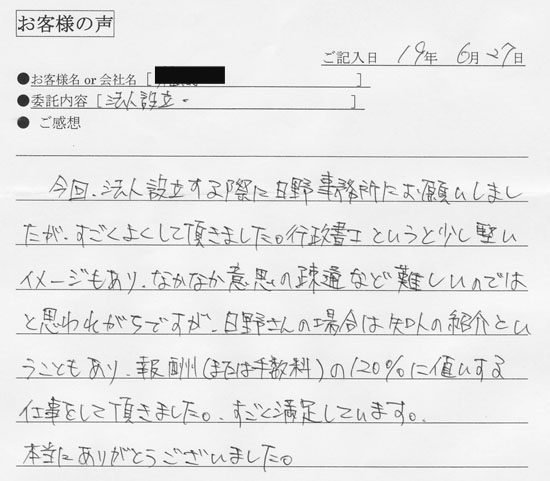 お客様の声
ご記入日 19年 6月27日
●お客様名 or 会社名 [ ]
●委託内容 [法人設立・ ]
● ご感想
今回、法人設立する際に日野事務所にお願いしまし
たが、すごくよくして頂きました。行政書士というと少し堅い
イメージもあり、なかなか意思の疎通など難しいのでは
と思われがちですが、日野さんの場合は知人の紹介とい
うこともあり、報酬(または手数料)の120%に値いする
仕事をして頂きました。すごく満足しています。
本当にありがとうございました。